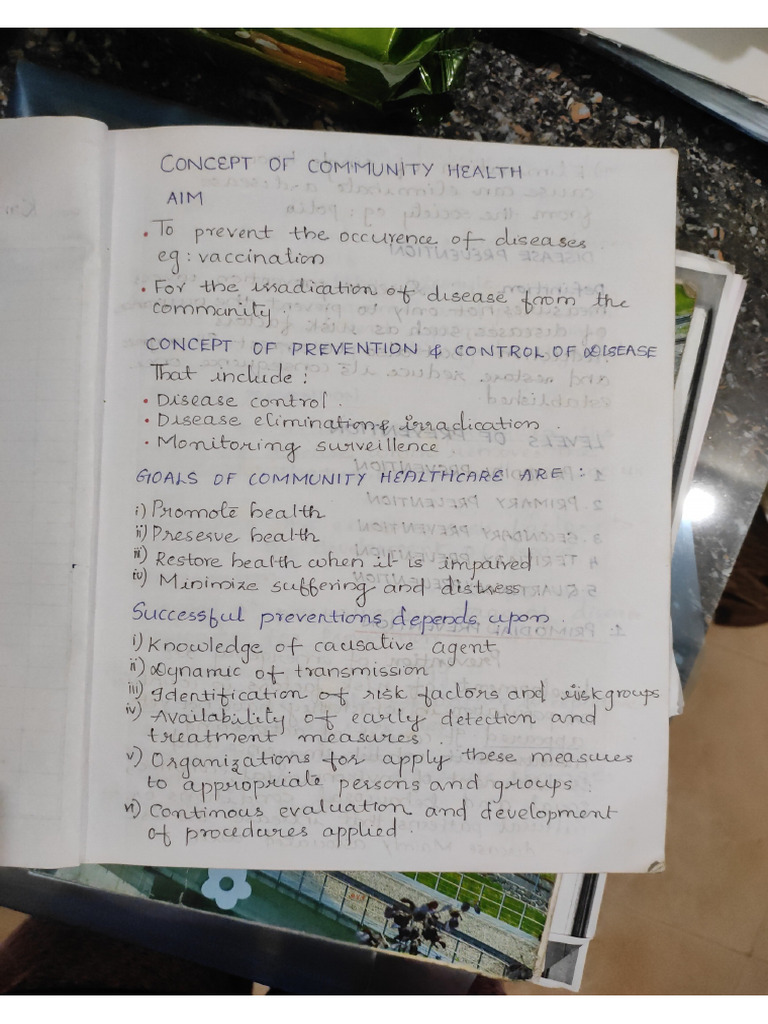 CONCEPT OF COMMUNITY HEALTH
AIM
• To prevent the occurence of diseases
eg: vaccination
• For the irradication of disease from the
community.
CONCEPT OF PREVENTION & CONTROL OF DISEASE
That include:
• Disease control.
• Disease elimination & irradication.
• Monitoring surveillence
GOALS OF COMMUNITY HEALTHCARE ARE:
i) Promote health
ii) Preserve health
iii) Restore health when it is impaired
iv) Minimize suffering and distress
Successful preventions depends upon.
i) Knowledge of causative agent
ii) Dynamic of transmission
iii) Identification of risk factors and risk groups
iv) Availability of early detection and
treatment measures.
v) Organizations for apply these measures
to appropriate persons and groups.
vi) Continous evaluation and development
of procedures applied.